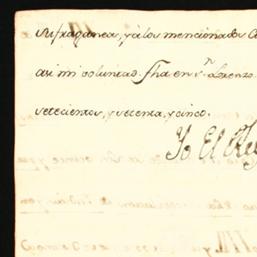 Sufraganea, y á los mencionados
asi mi voluntad. Fha en Sn. Lorenzo
setecientos, y setenta, y cinco.
Yo El Rey